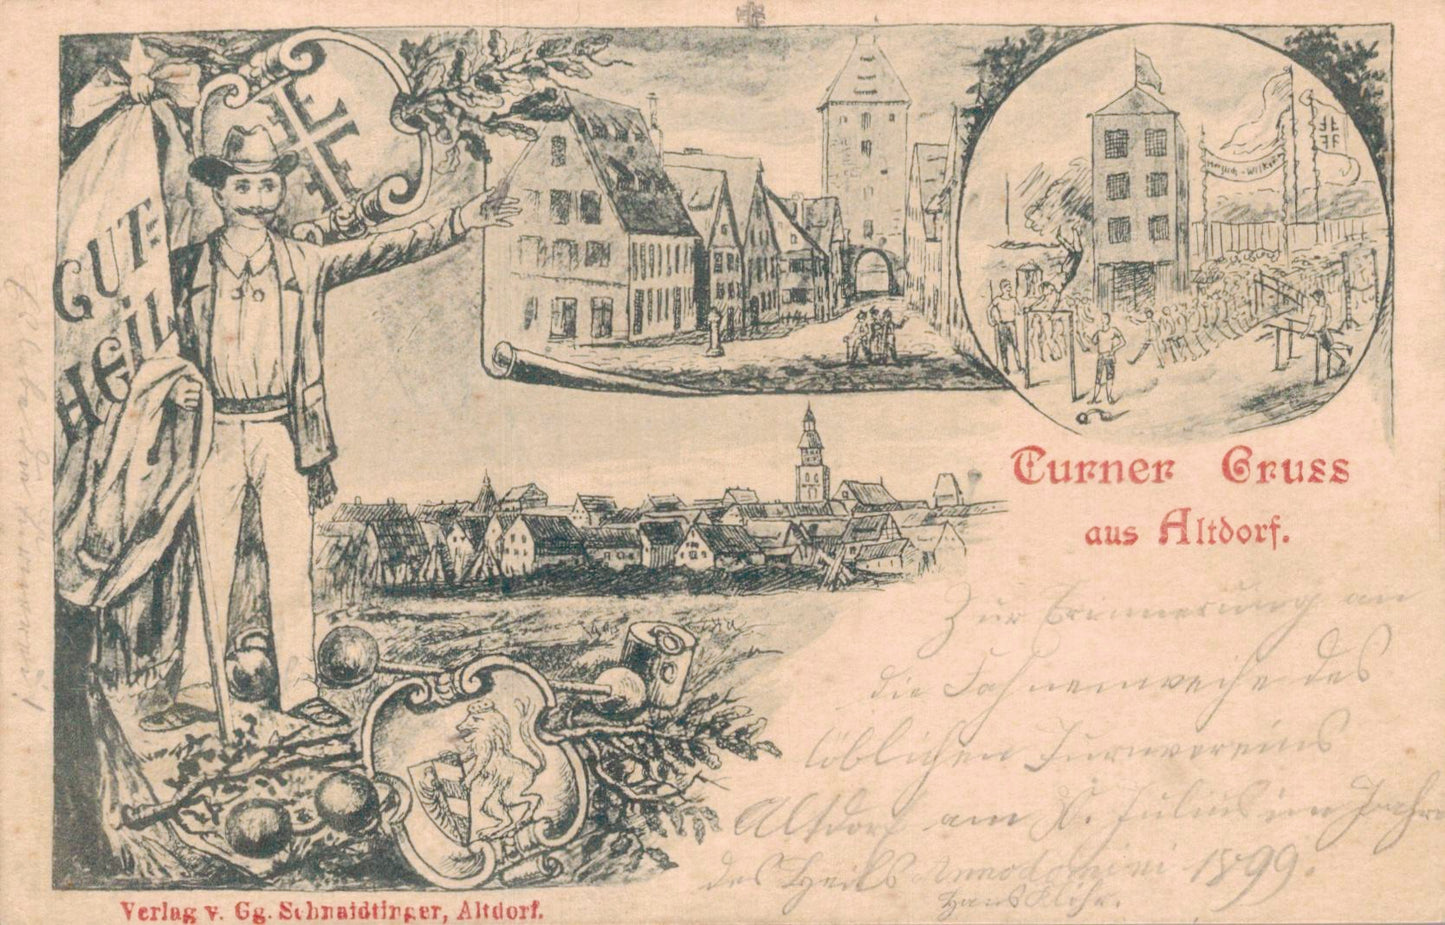 GUT:
HEIL
Turner Gruss
aus Altdorf.
Zur Erinnerung an
die Fahnenweihe des
löblichen Turnvereins
Altdorf am Julius im Jahre
des Heils Annodomini 1899.
Hans
Verlag v. Gg. Schnaidtinger, Altdorf.